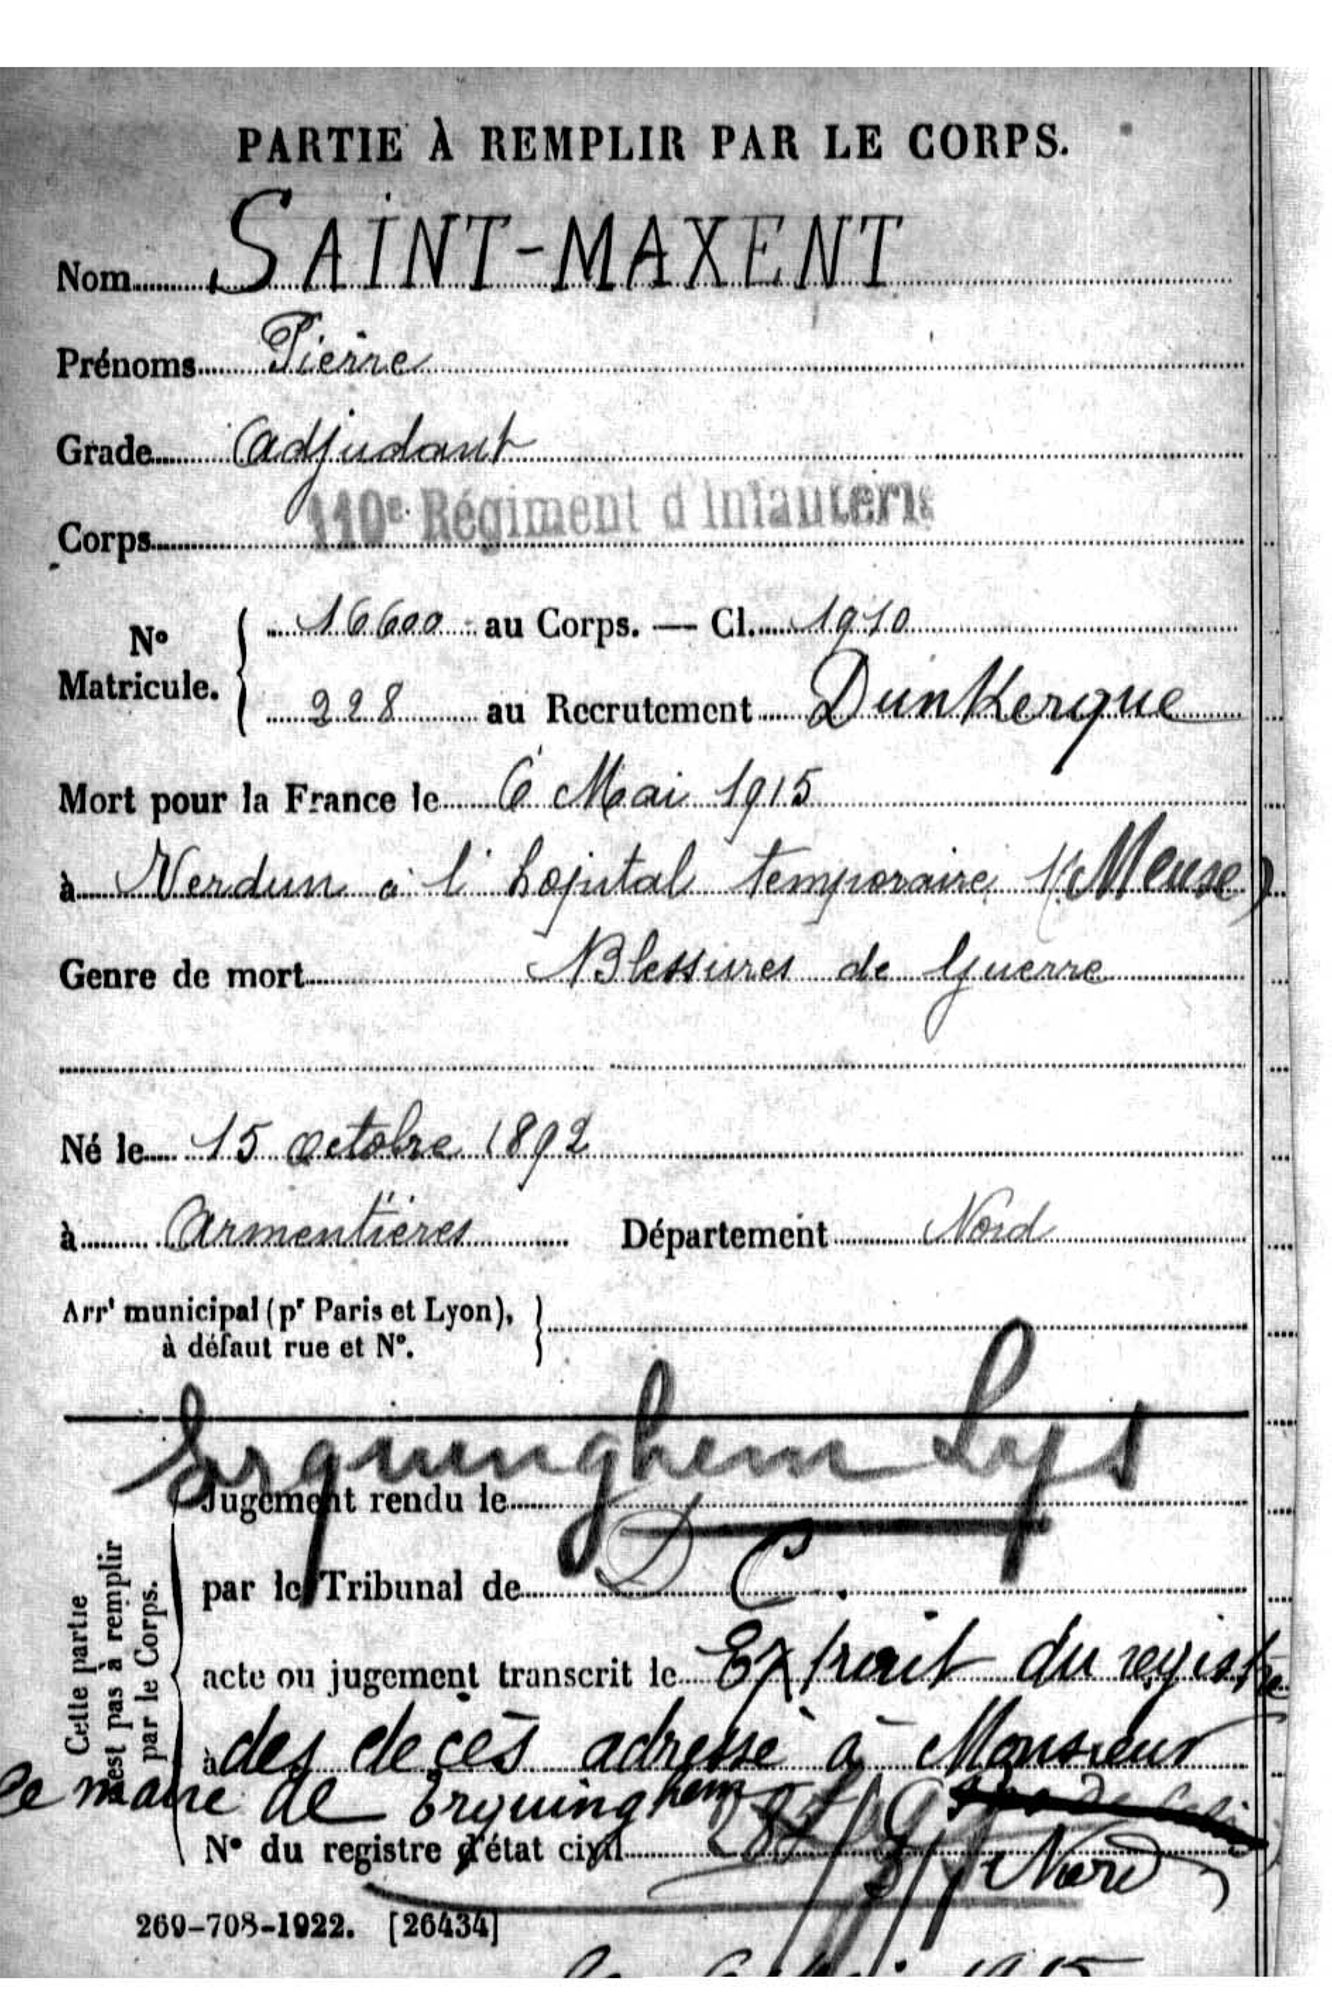 PARTIE À REMPLIR PAR LE CORPS.
Nom SAINT-MAXENT
Prénoms Pierre
Grade Adjudant
Corps 110e Régiment d'Infanterie
No Matricule. { 16600 au Corps. — Cl. 1910
228 au Recrutement Dunkerque
Mort pour la France le 6 Mai 1915
à Verdun à l'hôpital temporaire (Meuse)
Genre de mort Blessures de Guerre
Né le 15 Octobre 1892
à Armentières Département Nord
Arrt municipal (pr Paris et Lyon),
à défaut rue et No. }
Erquinghem Lys
Jugement rendu le
par le Tribunal de D C.
acte ou jugement transcrit le Extrait du registre
à des decès adressé à Monsieur
le maire de Erquinghem
No du registre d'état civil Nord
Cette partie
n'est pas à remplir
par le Corps.
269-708-1922. [26434]